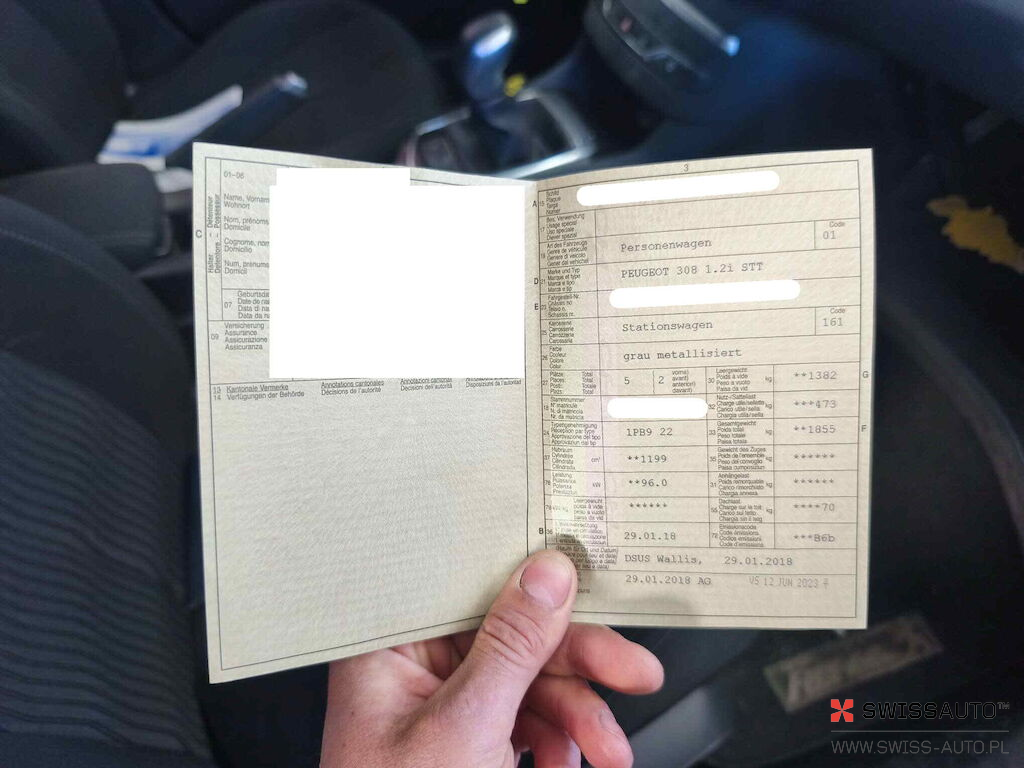 01-06
Name, Vornam
Wohnort
Nom, prénoms
Domicile
Cognome, nom
Domicilio
Num, prenums
Domicil
C
Halter Détenteur
Detentore Possessur
07
Geburtsda
Date de nai
Data di na
Data da na
09
Versicherung
Assurance
Assicurazione
Assicuranza
13 Kantonale Vermerke
14 Verfügungen der Behörde
Annotations cantonales
Décisions de l'autorité
Annotazioni cantonali
Decisioni dell'autorità
Annotaziuns chantunalas
Disposiziuns da l'autoritad
3
A 15 Schild
Plaque
Targa
Numer
17 Bes. Verwendung
Usage spécial
Uso speciale
Diever spezial
19 Art des Fahrzeugs
Genre de véhicule
Genere di veicolo
Gener dal vehichel
Personenwagen
Code
01
D 21 Marke und Typ
Marque et type
Marca e tipo
Marca e tip
PEUGEOT 308 1.2i STT
E 23 Fahrgestell-Nr.
Châssis no
Telaio n.
Schassis nr.
25 Karosserie
Carrosserie
Carrozzeria
Carossaria
Stationswagen
Code
161
26 Farbe
Couleur
Colore
Colur
grau metallisiert
27 Plätze: Total
Places: Total
Posti: Totale
Plazs: Total
5
2
vorn)
avant)
anteriori)
davant)
30 Leergewicht
Poids à vide
Peso a vuoto
Paisa da vid
kg
**1382
G
18 Stammnummer
N° matricule
N. di matricola
Nr. da matricla
32 Nutz-/Sattellast
Charge utile/sellette
Carico utile/sella
Chargia utila/sella
kg
***473
24 Typengenehmigung
Réception par type
Approvazione del tipo
Approvaziun dal tip
1PB9 22
33 Gesamtgewicht
Poids total
Peso totale
Paisa totala
kg
**1855
F
37 Hubraum
Cylindrée
Cilindrata
Cilindrada
cm³
**1199
35 Gewicht des Zuges
Poids de l'ensemble
Peso del convoglio
Paisa cumposiziun
kg
******
76 Leistung
Puissance
Potenza
Prestaziun
kW
**96.0
31 Anhängelast
Poids remorquable
Carico rimorchiato
Chargia annexa
kg
******
78 kW/kg
Leergewicht
poids à vide
peso a vuoto
paisa da vid
******
55 Dachlast
Charge sur le toit
Carico sul tetto
Chargia sin il tetg
kg
****70
B 36
29.01.18
72 Emissionscode
Code émissions
Codice emissioni
Code d'emissiuns
***B6b
DSUS Wallis, 29.01.2018
29.01.2018 AG
VS 12 JUN 2023
SWISSAUTO™
WWW.SWISS-AUTO.PL